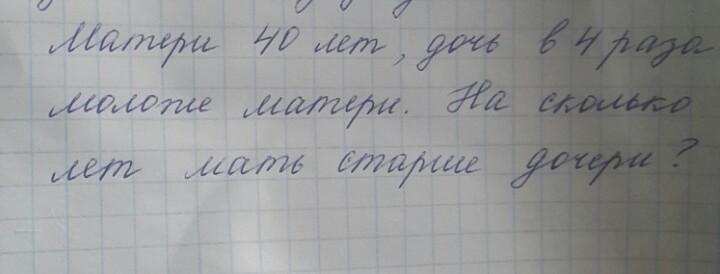 Матери 40 лет, дочь в 4 раза
моложе матери. На сколько
лет мать старше дочери?